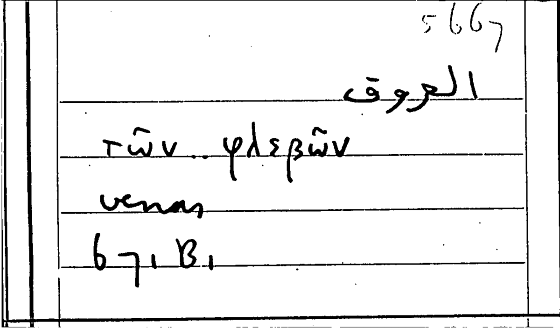 5667
العروق
τῶν .. φλεβῶν
venas
67, B,